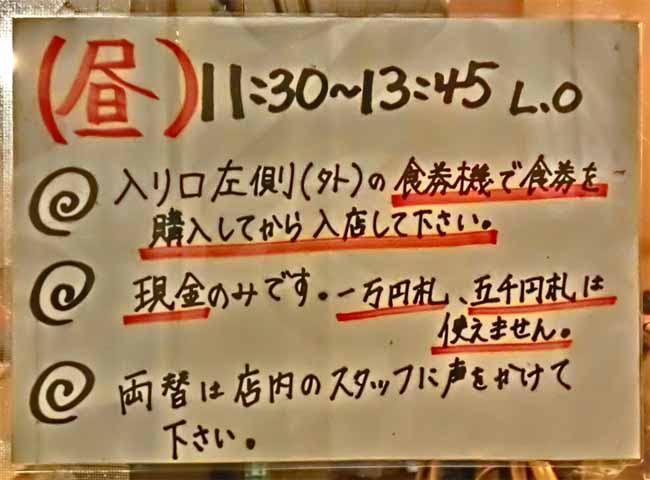 (昼) 11:30~13:45 L.O
入り口左側(外)の食券機で食券を
購入してから入店して下さい。
現金のみです。一万円札、五千円札は
使えません。
両替は店内のスタッフに声をかけて
下さい。